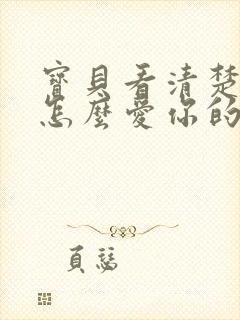 寶貝看清楚
怎麼愛你的